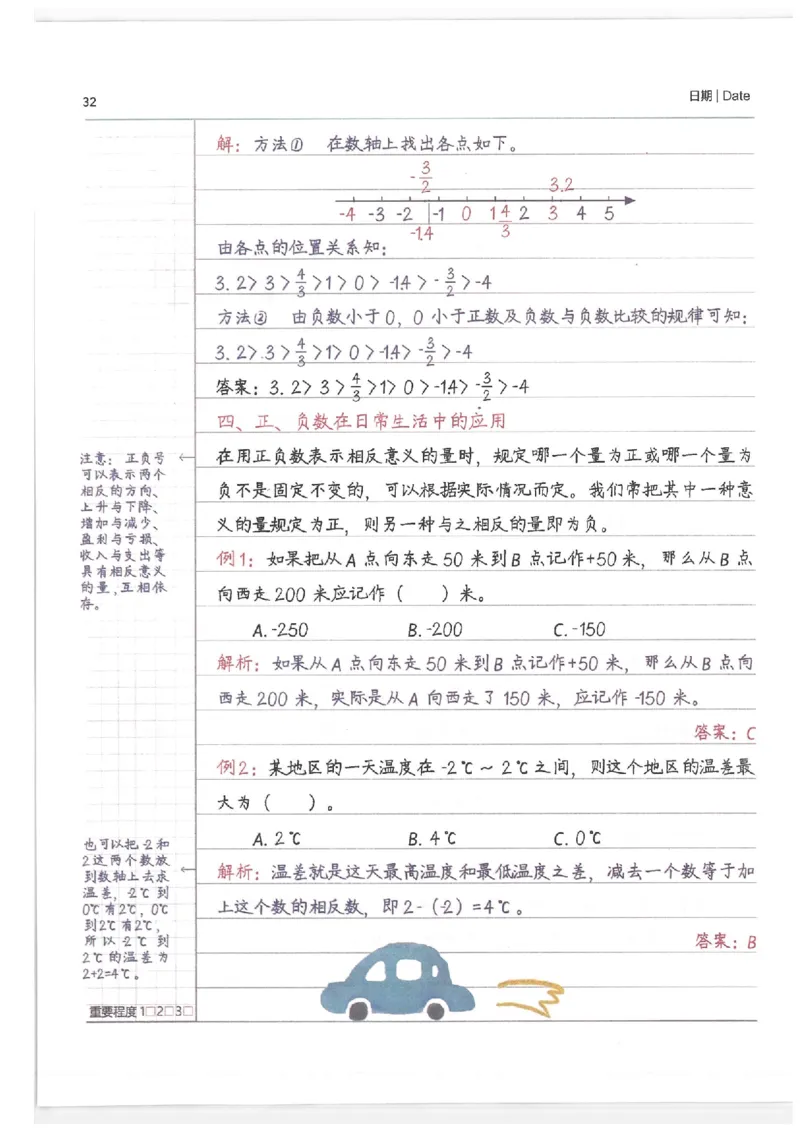 32
日期 | Date
解：方法① 在数轴上找出各点如下。
-3/2 3.2
-4 -3 -2 -1 0 1 4/3 2 3 4 5
-1.4
由各点的位置关系知：
3.2>3>4/3>1>0>-1.4>-3/2>-4
方法② 由负数小于0，0小于正数及负数与负数比较的规律可知：
3.2>3>4/3>1>0>-1.4>-3/2>-4
答案：3.2>3>4/3>1>0>-1.4>-3/2>-4
四、正、负数在日常生活中的应用
在用正负数表示相反意义的量时，规定哪一个量为正或哪一个量为
负不是固定不变的，可以根据实际情况而定。我们常把其中一种意
义的量规定为正，则另一种与之相反的量即为负。
注意：正负号
可以表示两个
相反的方向、
上升与下降、
增加与减少、
盈利与亏损、
收入与支出等
具有相反意义
的量，互相依
存。
例1：如果把从A点向东走50米到B点记作+50米，那么从B点
向西走200米应记作（ ）米。
A.-250 B.-200 C.-150
解析：如果从A点向东走50米到B点记作+50米，那么从B点向
西走200米，实际是从A向西走了150米，应记作-150米。
答案：C
例2：某地区的一天温度在-2℃～2℃之间，则这个地区的温差最
大为（ ）。
A.2℃ B.4℃ C.0℃
解析：温差就是这天最高温度和最低温度之差，减去一个数等于加
上这个数的相反数，即2-（-2）=4℃。
答案：B
也可以把-2和
2这两个数放
到数轴上去求
温差，-2℃到
0℃有2℃，0℃
到2℃有2℃，
所以-2℃到
2℃的温差为
2+2=4℃。
重要程度 1□2□3□